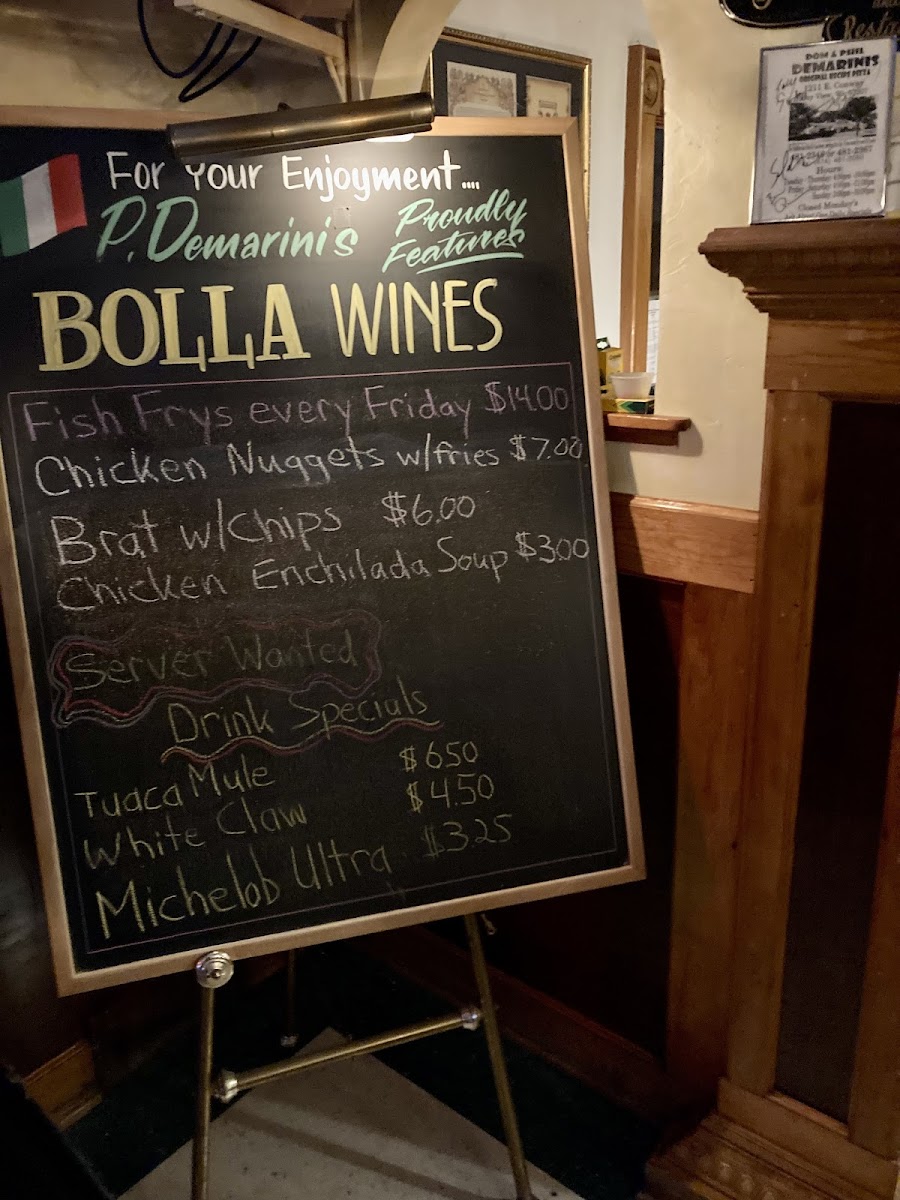 For Your Enjoyment....
P. Demarini's Proudly Features
BOLLA WINES
Fish Frys every Friday $14.00
Chicken Nuggets w/fries $7.00
Brat w/chips $6.00
Chicken Enchilada Soup $3.00
Server Wanted
Drink Specials
Tuaca Mule $6.50
White Claw $4.50
Michelob Ultra $3.25
DOM & PHIL
DEMARINIS
ORIGINAL RECIPE PIZZA
1211 E. Conway
Hours:
Closed Monday's